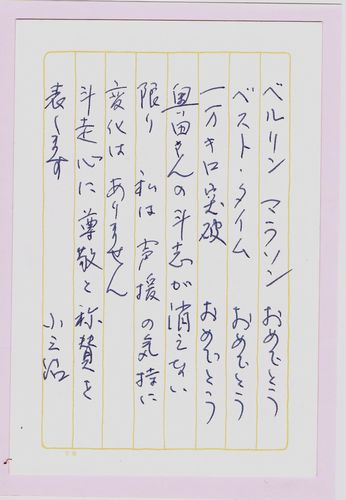 ベルリン マラソン おめでとう
ベスト・タイム おめでとう
一万キロ突破 おめでとう
奥田さんの斗志が消えない
限り 私は声援の気持に
変化は ありません
斗走心に尊敬と称賛を
表します 小三治